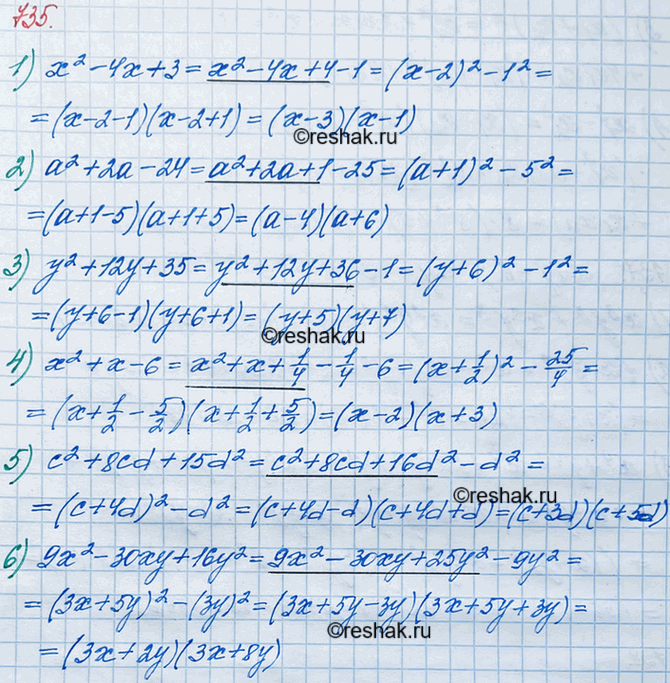 735.
1) x² - 4x + 3 = x² - 4x + 4 - 1 = (x-2)² - 1² =
= (x-2-1)(x-2+1) = (x-3)(x-1)
©reshak.ru
2) a² + 2a - 24 = a² + 2a + 1 - 25 = (a+1)² - 5² =
= (a+1-5)(a+1+5) = (a-4)(a+6)
3) y² + 12y + 35 = y² + 12y + 36 - 1 = (y+6)² - 1² =
= (y+6-1)(y+6+1) = (y+5)(y+7)
©reshak.ru
4) x² + x - 6 = x² + x + 1/4 - 1/4 - 6 = (x + 1/2)² - 25/4 =
= (x + 1/2 - 5/2)(x + 1/2 + 5/2) = (x-2)(x+3)
5) c² + 8cd + 15d² = c² + 8cd + 16d² - d² =
©reshak.ru
= (c+4d)² - d² = (c+4d-d)(c+4d+d) = (c+3d)(c+5d)
6) 9x² - 30xy + 16y² = 9x² - 30xy + 25y² - 9y² =
= (3x+5y)² - (3y)² = (3x+5y-3y)(3x+5y+3y) =
©reshak.ru
= (3x+2y)(3x+8y)